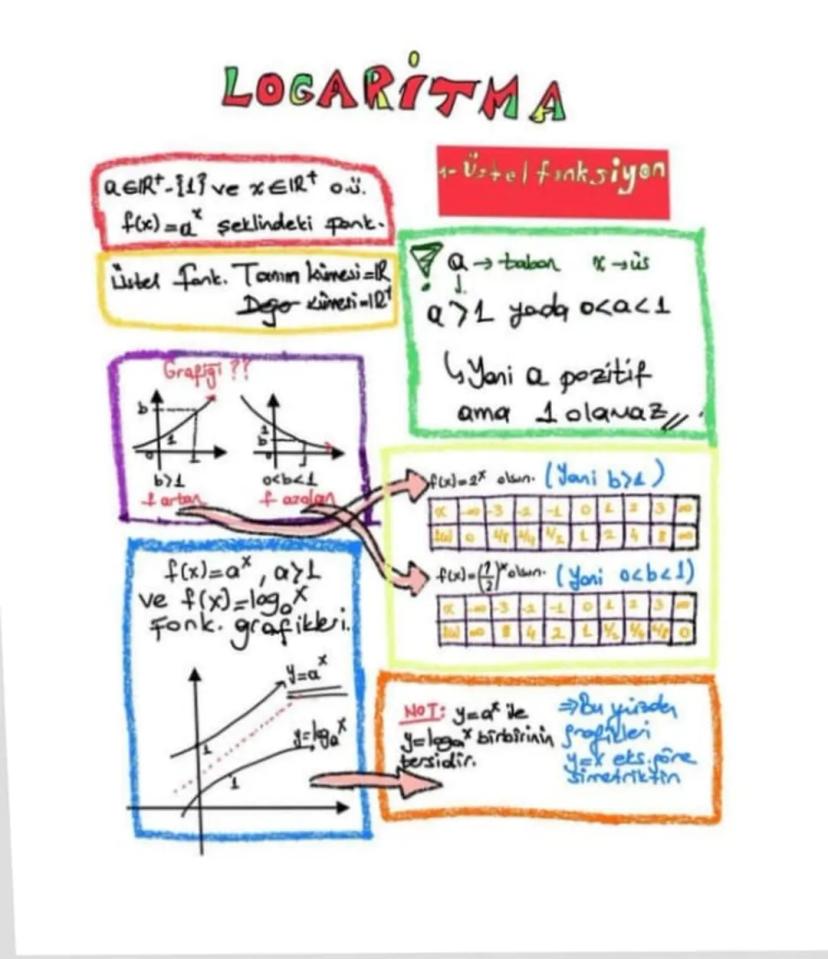 LOGARİTMA
a∈IR⁺-{1} ve x∈IR⁺ o.ü.
f(x)=aˣ şeklindeki fonk.
1-Üstel fonksiyon
Üstel fonk. Tanım kümesi=IR
Değer kümesi=IR⁺
a→taban x→üs
a>1 yada 0<a<1
↳Yani a pozitif
ama 1 olamaz//.
Grafiği??
b
1
0
1
b
0
b>1
0<b<1
f artan
f azalan
f(x)=2ˣ olsun. (Yani b>1)
x -∞ -3 -2 -1 0 1 2 3 ∞
f(x) 0 1/8 1/4 1/2 1 2 4 8 ∞
f(x)=(1/2)ˣ olsun. (Yani 0<b<1)
x -∞ -3 -2 -1 0 1 2 3 ∞
f(x) ∞ 8 4 2 1 1/2 1/4 1/8 0
f(x)=aˣ, a>1
ve f(x)=logₐx
Fonk. grafikleri.
y=aˣ
y=logₐx
1
1
NOT: y=aˣ ile
y=logₐx birbirinin
tersidir.
⇒Bu yüzden
grafikleri
y=x eks.göre
simetriktir